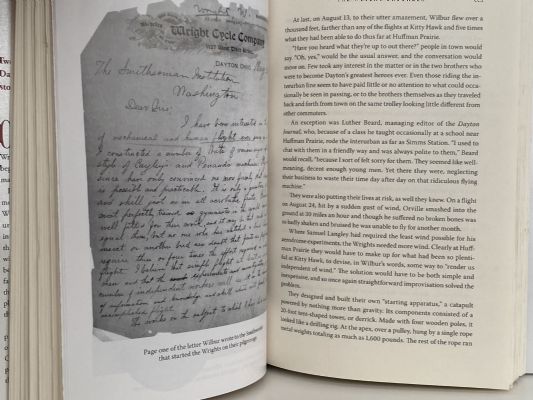 Wright Cycle Company
DAYTON, OHIO
The Smithsonian Institution
Washington
Dear Sirs:
I have been interested in
of mechanical and human flight ever
I constructed a number of bats of
style of Cayley's and Penaud's machines
since have only convinced me more
is possible and practicable. It is only a question
and skill just as in all acrobatic feats
most perfectly trained gymnasts in the world
well fitted for their work
equal them, but no one who has
insect or another bird
require three or four times the effort
flight. I believe that simple flight at
man and that the experiments and
number of independent workers will
of information and knowledge and skill which will
accomplished flight.
The works on the subject to which I have
Page one of the letter Wilbur wrote to the Smithsonian
that started the Wrights on their pilgrimage.
At last, on August 13, to their utter amazement, Wilbur flew over a
thousand feet, farther than any of the flights at Kitty Hawk and five times
what they had been able to do thus far at Huffman Prairie.
"Have you heard what they're up to out there?" people in town would
say. "Oh, yes," would be the usual answer, and the conversation would
move on. Few took any interest in the matter or in the two brothers who
were to become Dayton's greatest heroes ever. Even those riding the in-
terurban line seem to have paid little or no attention to what could occa-
sionally be seen in passing, or to the brothers themselves as they traveled
back and forth from town on the same trolley looking little different from
other commuters.
An exception was Luther Beard, managing editor of the Dayton
Journal, who, because of a class he taught occasionally at a school near
Huffman Prairie, rode the interurban as far as Simms Station. "I used to
chat with them in a friendly way and was always polite to them," Beard
would recall, "because I sort of felt sorry for them. They seemed like well-
meaning, decent enough young men. Yet there they were, neglecting
their business to waste their time day after day on that ridiculous flying
machine."
They were also putting their lives at risk, as well they knew. On a flight
on August 24, hit by a sudden gust of wind, Orville smashed into the
ground at 30 miles an hour and though he suffered no broken bones was
so badly shaken and bruised he was unable to fly for another month.
Where Samuel Langley had required the least wind possible for his
aerodrome experiments, the Wrights needed more wind. Clearly at Huff-
man Prairie they would have to make up for what had been so plenti-
ful at Kitty Hawk, to devise, in Wilbur's words, some way to "render us
independent of wind." The solution would have to be both simple and
inexpensive, and so once again straightforward improvisation solved the
problem.
They designed and built their own "starting apparatus," a catapult
powered by nothing more than gravity. Its components consisted of a
20-foot tent-shaped tower, or derrick. Made with four wooden poles, it
looked like a drilling rig. At the apex, over a pulley, hung by a single rope
metal weights totaling as much as 1,600 pounds. The rest of the rope ran